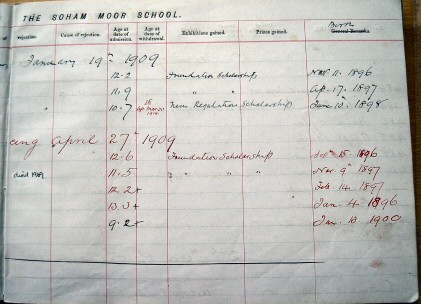 THE SOHAM MOOR SCHOOL.
rejection. Cause of rejection. Age at date of admission. Age at date of withdrawal. Exhibitions gained. Prizes gained. Birth General Remarks
January 19th 1909
12.2 Foundation Scholarship Nov 11. 1896
11.9 " " Ap. 17. 1897
" 10.7 16 New Regulation Scholarship 1898
april 27th 1909
12.6 Foundation Scholarship 15. 1896
died 11.5 " " " Nov. 9th 1897
12.2+ Feb. 14. 1897
13.3+ Jan. 4. 1896
9.2+ Jan. 18. 1900